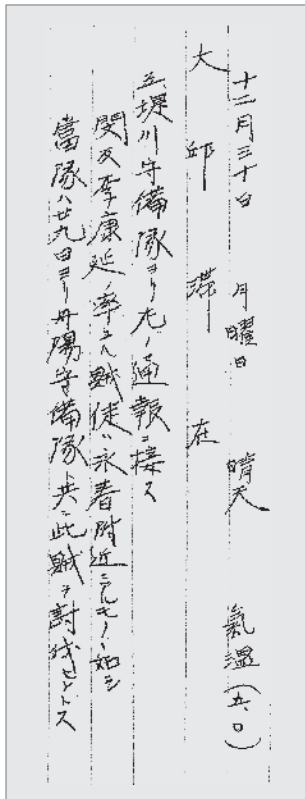 十二月三十日 月曜日 晴天 氣温(五、〇)
大邱滞在
五堤川守備隊ヨリ左ノ通報ニ接ス
閔及李康延ノ率ユル賊徒ハ永春附近ニアルモノヽ如シ
當隊ハ廿九日ヨリ丹陽守備隊ト共ニ此賊ヲ討伐セントス